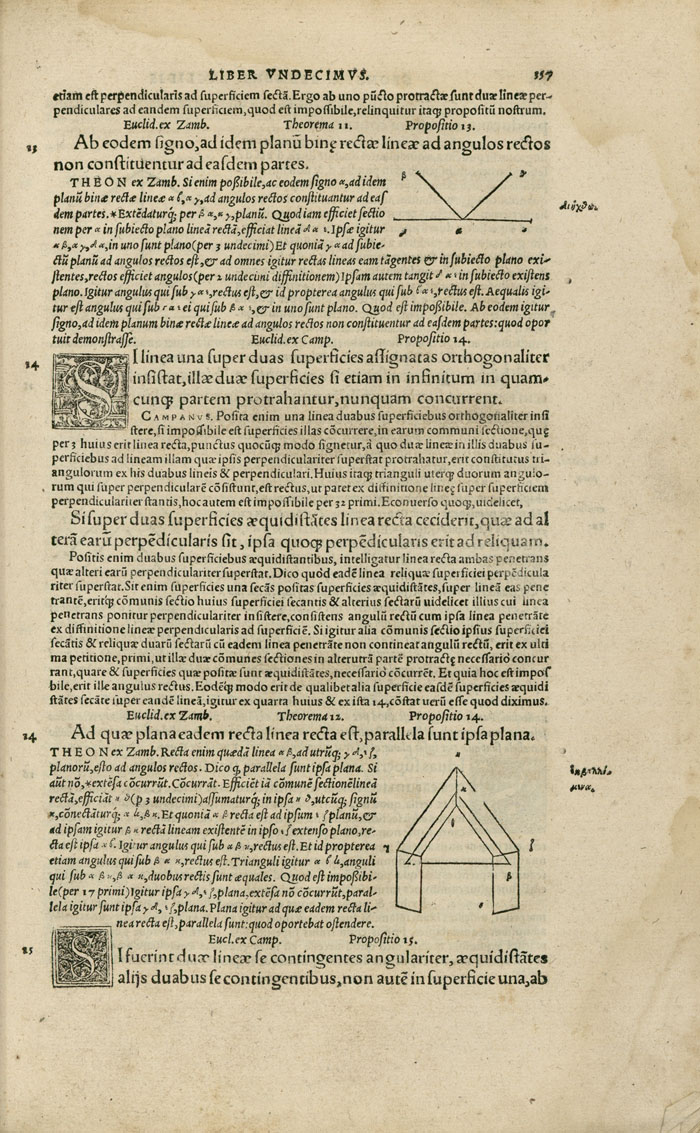 LIBER VNDECIMVS. 357
etiam est perpendicularis ad superficiem sectā. Ergo ab uno pūcto protractæ sunt duæ lineæ per-
pendiculares ad eandem superficiem, quod est impossibile, relinquitur itaq; propositū nostrum.
Euclid. ex Zamb. Theorema 11. Propositio 13.
13 Ab eodem signo, ad idem planū binę rectæ lineæ ad angulos rectos
non constituentur ad easdem partes.
THEON ex Zamb. Si enim poßibile, ac eodem signo α, ad idem
planū binæ rectæ lineæ α β, α γ, ad angulos rectos constituantur ad eas
dem partes. * Extēdaturq́; per β α, α γ, planū. Quod iam efficiet sectio
nem per α in subiecto plano lineā rectā, efficiat lineā δ α ε. Ipsæ igitur
α β, α γ, δ α ε, in uno sunt plano (per 3 undecimi) Et quoniā γ α ad subie-
ctū planū ad angulos rectos est, & ad omnes igitur rectas lineas eam tāgentes & in subiecto plano exi-
stentes, rectos efficiet angulos (per 2 undecimi diffinitionem) Ipsam autem tangit δ α ε in subiecto existens
plano. Igitur angulus qui sub γ α ε, rectus est, & id propterea angulus qui sub β α ε, rectus est. Aequalis igi-
tur est angulus qui sub γ α ε ei qui sub β α ε, & in uno sunt plano. Quod est impoßibile. Ab eodem igitur
signo, ad idem planum binæ rectæ lineæ ad angulos rectos non constituentur ad easdem partes: quod opor
tuit demonstrasse. Euclid. ex Camp. Propositio 14.
14 SI linea una super duas superficies assignatas orthogonaliter
insistat, illæ duæ superficies si etiam in infinitum in quam-
cunq; partem protrahantur, nunquam concurrent.
CAMPANVS. Posita enim una linea duabus superficiebus orthogonaliter insi
stere, si impossibile est superficies illas cōcurrere, in earum communi sectione, quę
per 3 huius erit linea recta, punctus quocūq; modo signetur, à quo duæ lineæ in illis duabus su-
perficiebus ad lineam illam quæ ipsis perpendiculariter superstat protrahatur, erit constitutus tri-
angulorum ex his duabus lineis & perpendiculari. Huius itaq; trianguli uterq; duorum angulo-
rum qui super perpendicularē cōsistunt, est rectus, ut patet ex diffinitione lineę super superficiem
perpendiculariter stantis, hoc autem est impossibile per 32 primi. Econuerso quoq;, uidelicet,
Si super duas superficies æquidistātes linea recta ceciderit, quæ ad al
terā earū perpēdicularis sit, ipsa quoq; perpēdicularis erit ad reliquam.
Positis enim duabus superficiebus æquidistantibus, intelligatur linea recta ambas penetrans
quæ alteri earū perpendiculariter superstat. Dico quòd eadē linea reliquæ superficiei perpēdicula
riter superstat. Sit enim superficies una secās positas superficies æquidistātes, super lineā eas pene
trantē, eritq́; cōmunis sectio huius superficiei secantis & alterius sectarū uidelicet illius cui linea
penetrans ponitur perpendiculariter insistere, consistens angulū rectū cum ipsa linea penetrāte
ex diffinitione lineæ perpendicularis ad superficiē. Si igitur alia cōmunis sectio ipsius superficiei
secātis & reliquæ duarū sectarū cū eadem linea penetrāte non contineat angulū rectū, erit ex ulti
ma petitione, primi, ut illæ duæ cōmunes sectiones in alterutrā partē protractę necessariò concur
rant, quare & superficies quæ positæ sunt æquidistātes, necessariò cōcurrēt. Et quia hoc est impos
bile, erit ille angulus rectus. Eodēq́; modo erit de qualibet alia superficie easdē superficies æquidi
stātes secāte super eandē lineā, igitur ex quarta huius & ex ista 14, cōstat verū esse quod diximus.
Euclid. ex Zamb. Theorema 12. Propositio 14.
14 Ad quæ plana eadem recta linea recta est, parallela sunt ipsa plana.
THEON ex Zamb. Recta enim quædā linea α β, ad utrūq; γ δ, ε ζ,
planorū, esto ad angulos rectos. Dico q, parallela sunt ipsa plana. Si
aūt nō, * extēsa cōcurrūt. Cōcurrāt. Efficiēt iā cōmunē sectionē lineā
rectā, efficiāt η θ (p 3 undecimi) assumaturq́; in ipsa η θ, utcūq; signū
κ, cōnectāturq́; α κ, β κ. Et quoniā α β recta est ad ipsum ε ζ planū, &
ad ipsam igitur β κ rectā lineam existentē in ipso ε ζ extenso plano, re-
cta est ipsa α β. Igitur angulus qui sub α β κ, rectus est. Et id propterea
etiam angulus qui sub β α κ, rectus est. Trianguli igitur α β κ, anguli
qui sub α β κ, β α κ, duobus rectis sunt æquales. Quod est impoßibi-
le (per 17 primi) Igitur ipsa γ δ, ε ζ, plana. extēsa nō cōcurrūt, paral-
lela igitur sunt ipsa γ δ, ε ζ, plana. Plana igitur ad quæ eadem recta li-
nea recta est, parallela sunt: quod oportebat ostendere.
Eucl. ex Camp. Propositio 15.
15 SI fuerint duæ lineæ se contingentes angulariter, æquidistātes
alijs duabus se contingentibus, non autē in superficie una, ab